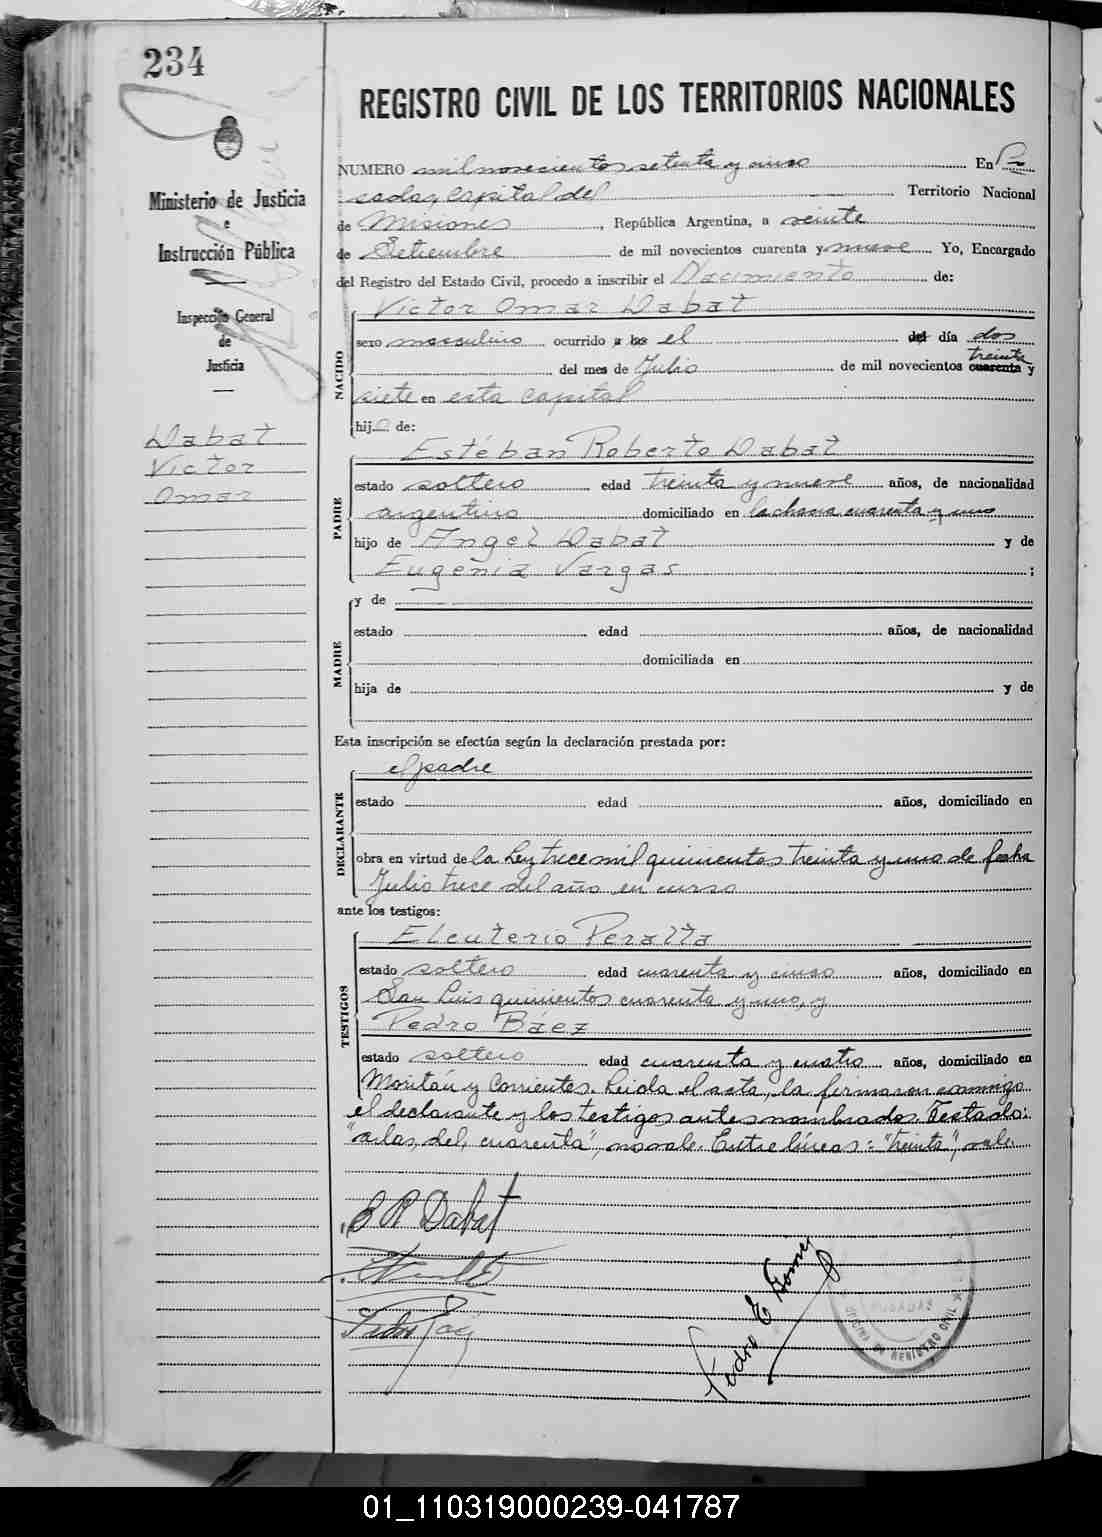 234
REGISTRO CIVIL DE LOS TERRITORIOS NACIONALES
Ministerio de Justicia
e
Instrucción Pública
Inspección General
de
Justicia
Dabat
Victor
Omar
NUMERO mil novecientos setenta y cinco En Po
sadas, Capital del Territorio Nacional
de Misiones, República Argentina, a veinte
de Setiembre de mil novecientos cuarenta y nueve Yo, Encargado
del Registro del Estado Civil, procedo a inscribir el Nacimiento de:
NACIDO
Victor Omar Dabat
sexo masculino ocurrido a las el del día dos
treinta
del mes de Julio de mil novecientos cuarenta y
siete en esta Capital
hijo de:
PADRE
Estéban Roberto Dabat
estado soltero edad treinta y nueve años, de nacionalidad
argentino domiciliado en la chacra cuarenta y uno
hijo de Angel Dabat y de
Eugenia Vargas ;
MADRE
y de
estado edad años, de nacionalidad
domiciliada en
hija de y de
Esta inscripción se efectúa según la declaración prestada por:
DECLARANTE
el padre
estado edad años, domiciliado en
obra en virtud de la Ley trece mil quinientos treinta y uno de fecha
Julio trece del año en curso
ante los testigos:
TESTIGOS
Eleuterio Peralta
estado soltero edad cuarenta y cinco años, domiciliado en
San Luis quinientos cuarenta y uno, y
Pedro Báez
estado soltero edad cuarenta y cuatro años, domiciliado en
Moritán y Corrientes. Leida el acta, la firmaron conmigo
el declarante y los testigos antes nombrados. Testado:
"a las, del, cuarenta", no vale. Entre líneas: "treinta", vale.
E R Dabat
Pedro Báez
Pedro E Gomez
POSADAS
OFICINA DE REGISTRO CIVIL
01_110319000239-041787